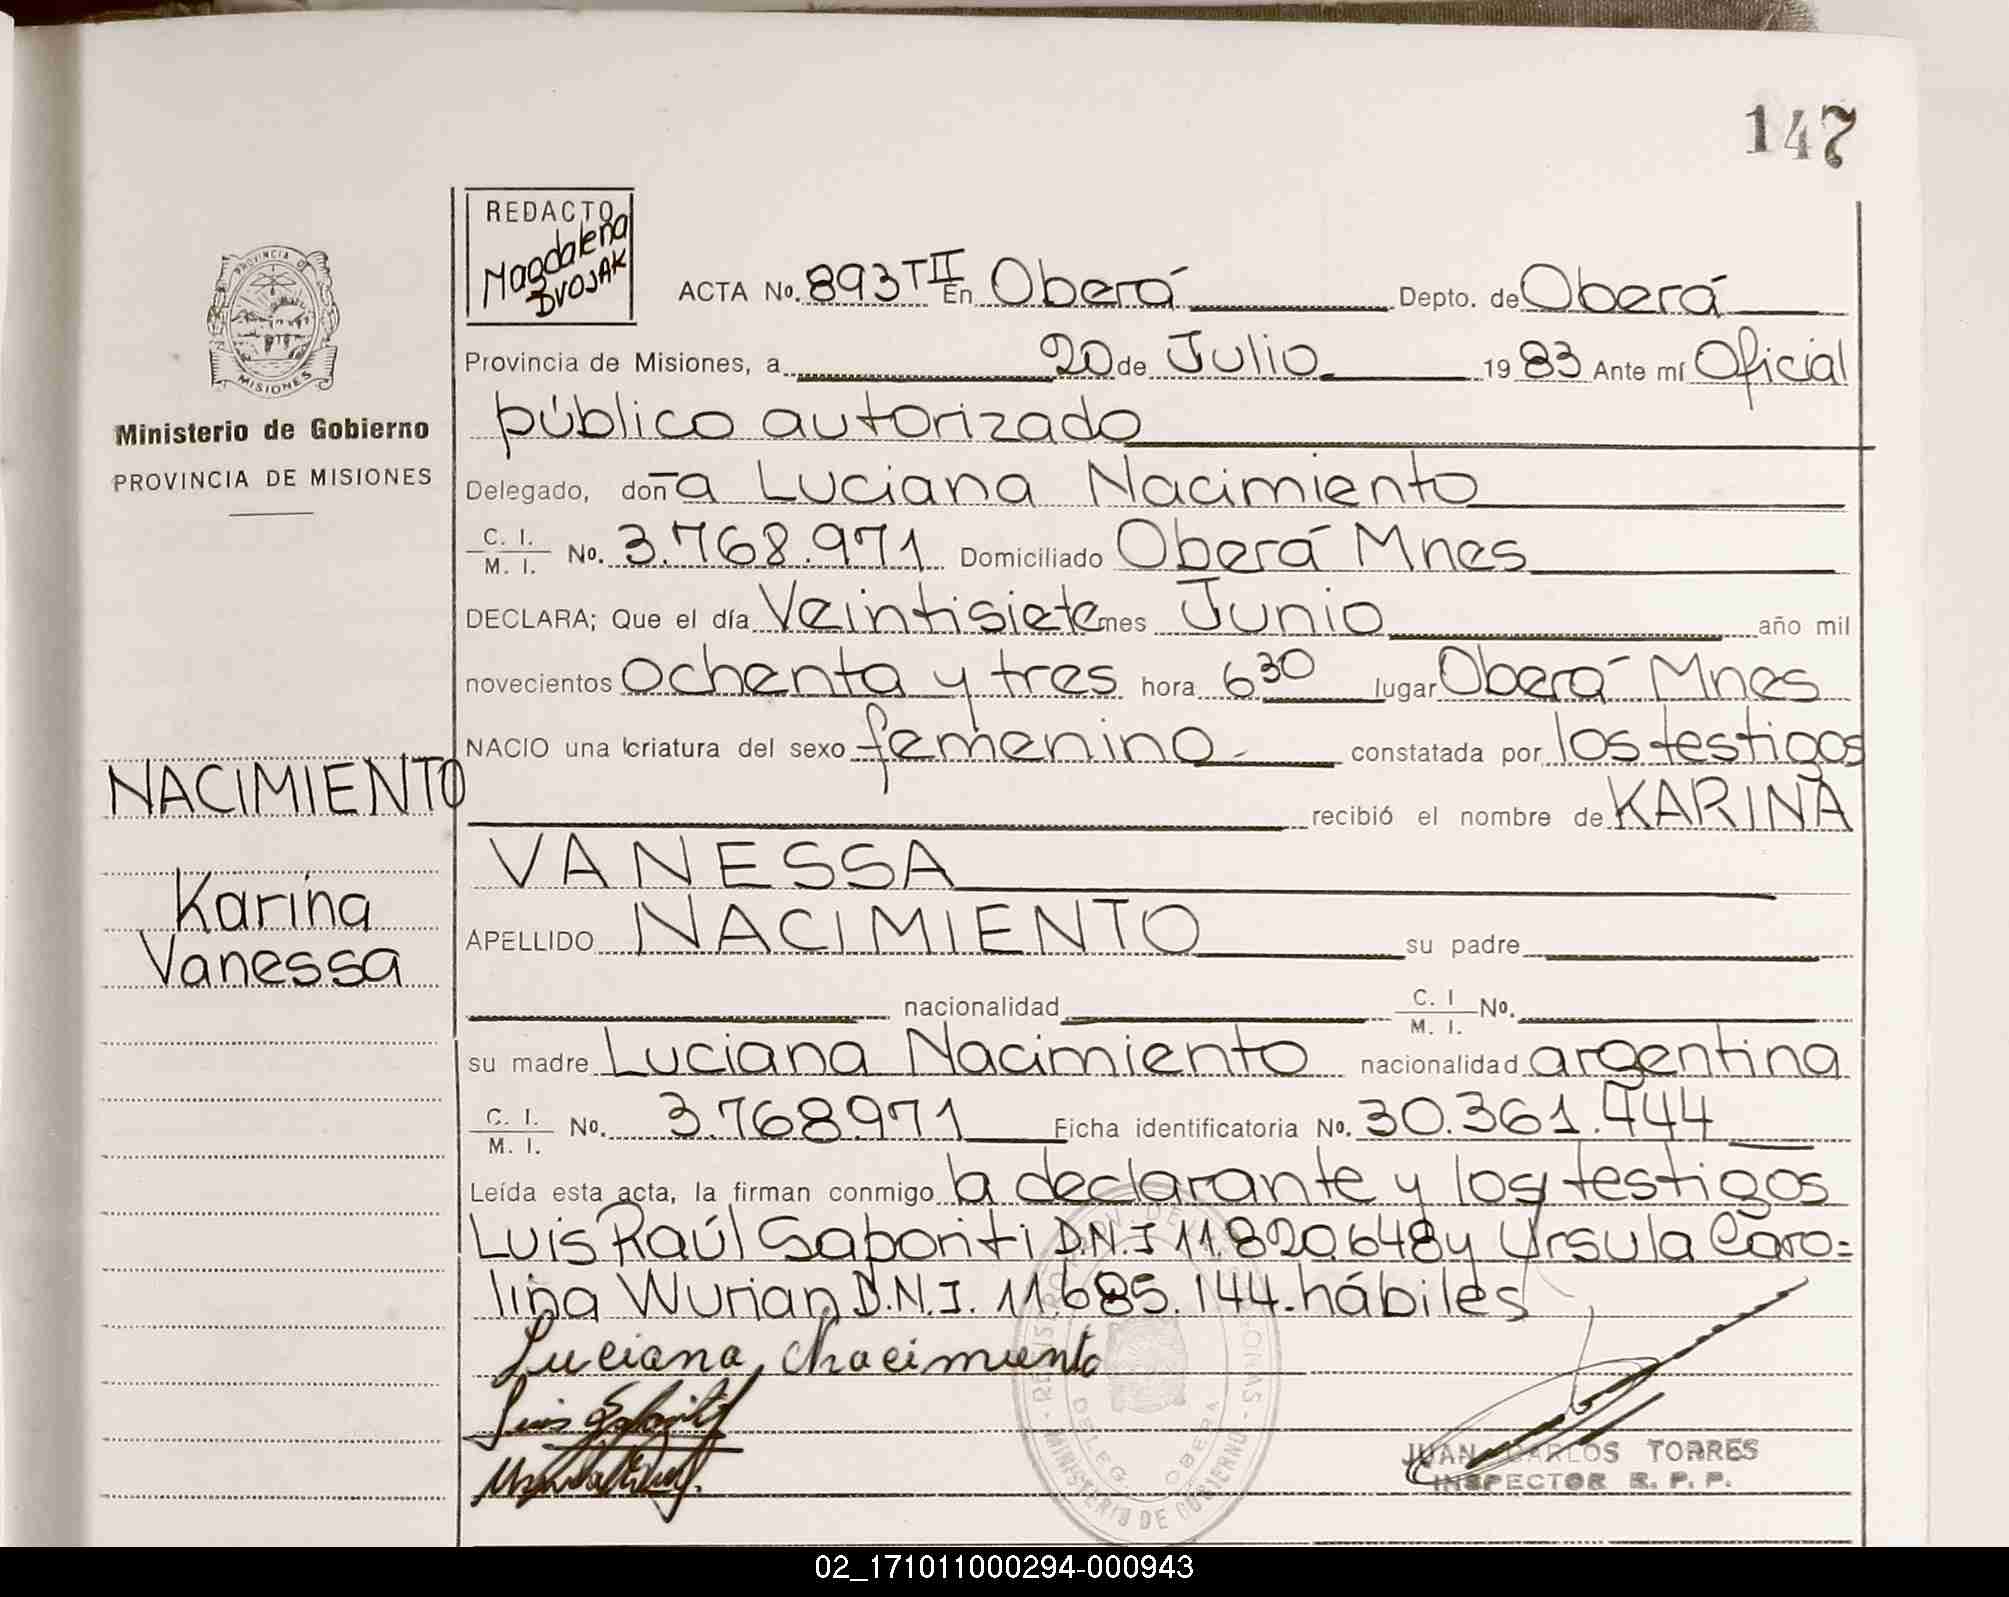 147
PROVINCIA DE
MISIONES
Ministerio de Gobierno
PROVINCIA DE MISIONES
NACIMIENTO
Karina
Vanessa
REDACTO
Magdalena
DVOJAK
ACTA No. 893 T II En Oberá Depto. de Oberá
Provincia de Misiones, a 20 de Julio 1983 Ante mí Oficial
público autorizado
Delegado, doña Luciana Nacimiento
C. I.
M. I. No. 3.768.971 Domiciliado Oberá Mnes
DECLARA; Que el día Veintisiete mes Junio año mil
novecientos ochenta y tres hora 6 30 lugar Oberá Mnes
NACIO una criatura del sexo femenino constatada por los testigos
recibió el nombre de KARINA
VANESSA
APELLIDO NACIMIENTO su padre
nacionalidad C. I
M. I. No.
su madre Luciana Nacimiento nacionalidad argentina
C. I.
M. I. No. 3.768971 Ficha identificatoria No. 30.361.444
Leída esta acta, la firman conmigo la declarante y los testigos
Luis Raúl Saporiti D.N.I 11.820.648 y Ursula Caro=
lina Wurian D.N.I. 11.685.144.hábiles
Luciana Nacimiento
Luis Saporiti
MINISTERIO DE GOBIERNO
DELEG. OBERA
JUAN CARLOS TORRES
INSPECTOR R. P. P.
02_171011000294-000943